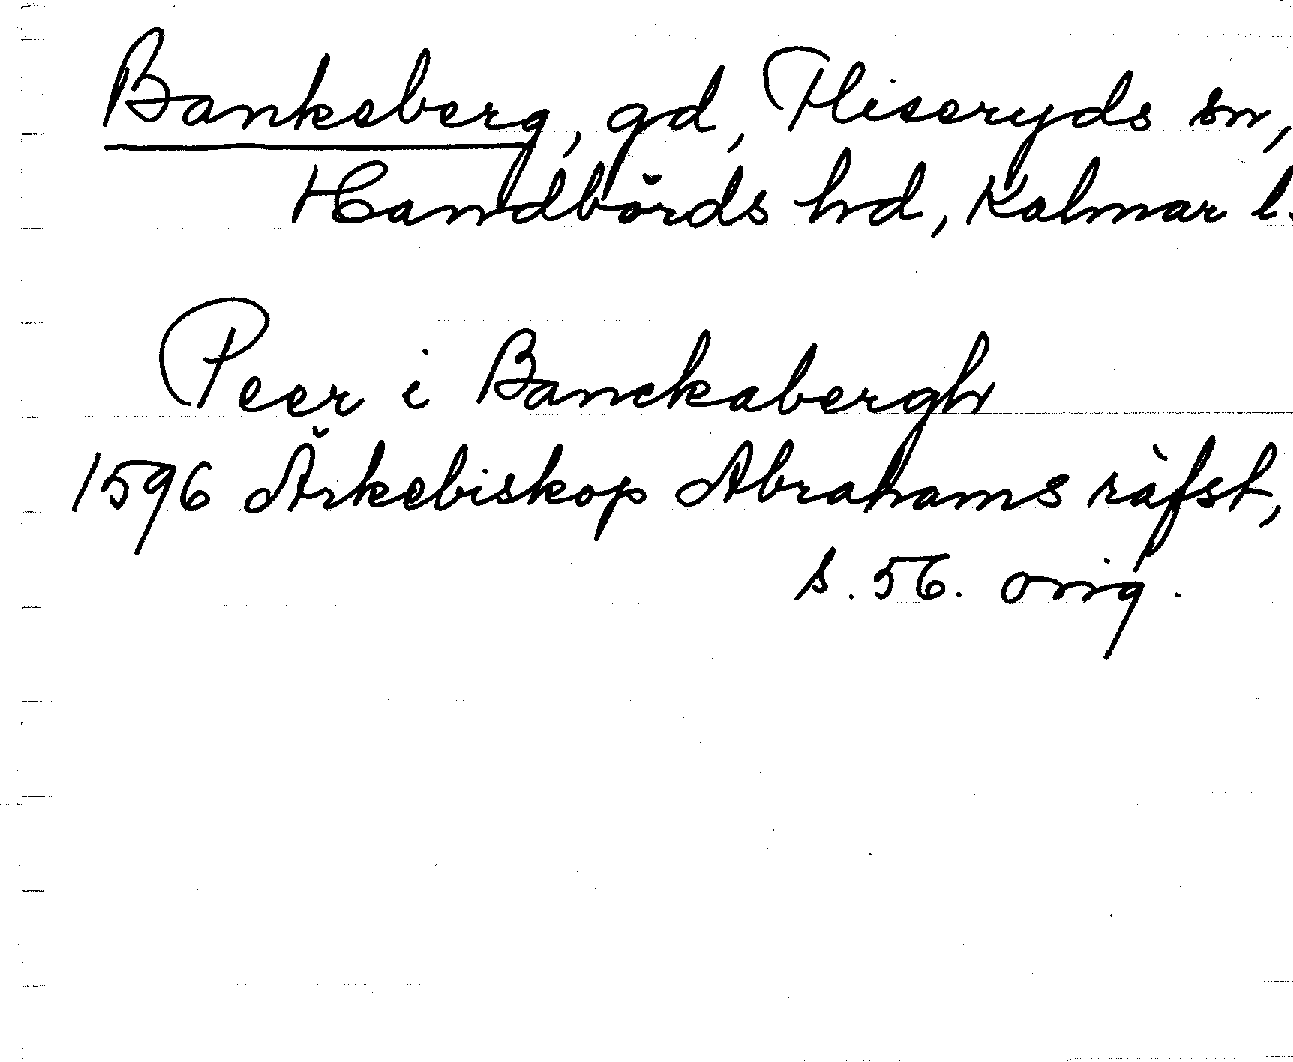 Bankeberg, gd, Fliseryds sn,
Handbörds hd, Kalmar l.
Peer i Banckabergh
1596 Ärkebiskop Abrahams räfst,
s. 56. orig.